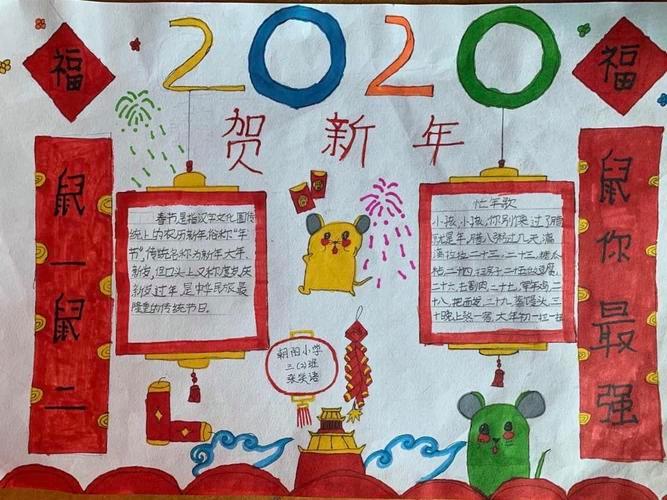 2020
福
福
贺新年
鼠一鼠二
鼠你最强
春节是指汉字文化圈传
统上的农历新年,俗称“年
节”,传统名称为新年、大年、
新岁,但口头上又称度岁、庆
新岁、过年,是中华民族最
隆重的传统节日。
忙年歌
小孩,小孩,你别馋,过了腊
八就是年,腊八粥过几天,漓
漓拉拉二十三,二十三,糖瓜
粘,二十四,扫房子,二十五,做豆腐,
二十六,去割肉,二十七,宰年鸡,二
十八,把面发,二十九,蒸馒头,三
十晚上熬一宿,大年初一扭一扭
朝阳小学
三(2)班